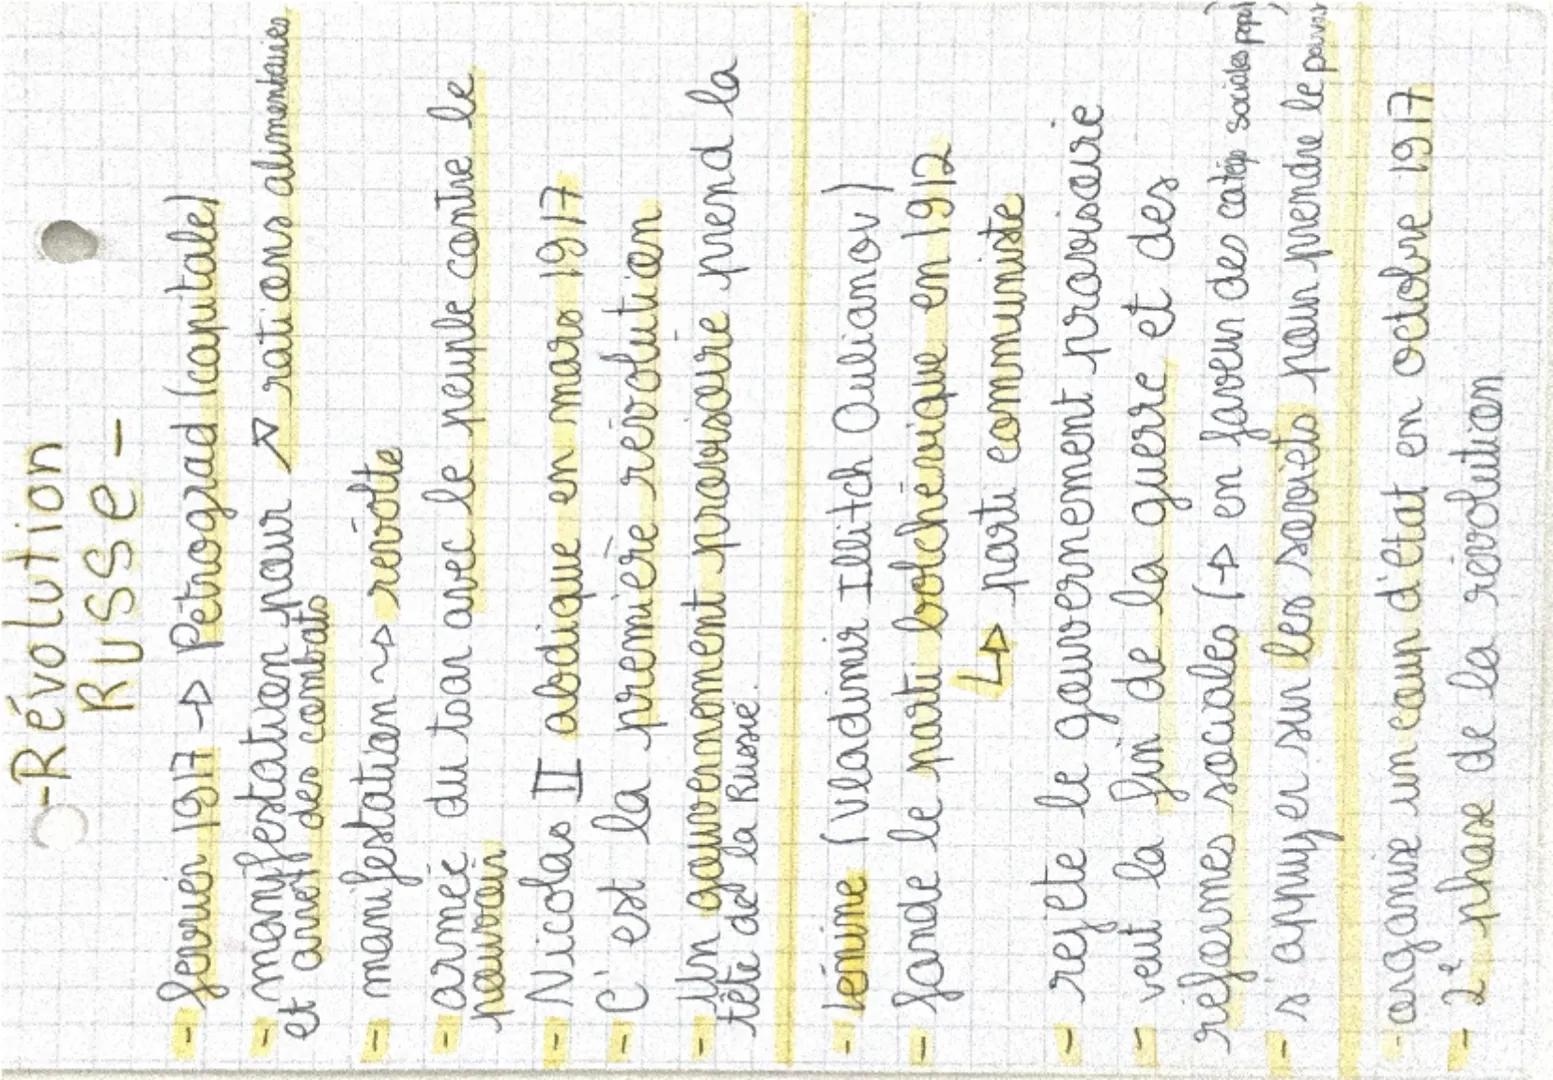 -Révolution
Russe-
- fevrier 1917 → Petrograd (capitale)
- manifestation pour ↗ rations alimentaires
et arrêt des combats
- manifestation ~> révolte
- armée du tsar avec le peuple contre le
pouvoir
- Nicolas II abdique en mars 1917
- C'est la première révolution
- Un gouvernement provisoire prend la
tête de la Russie.
- Lénine (Vladimir Illitch Oulianov)
- fonde le parti bolchévique en 1912
↳ parti communiste
- rejete le gouvernement provisoire
- veut la fin de la guerre et des
réformes sociales (→ en faveur des catég sociales pop)
- s'appuyer sur les soviets pour prendre le pouvoir
- organise un coup d'état en octobre 1917
- 2e phase de la révolution